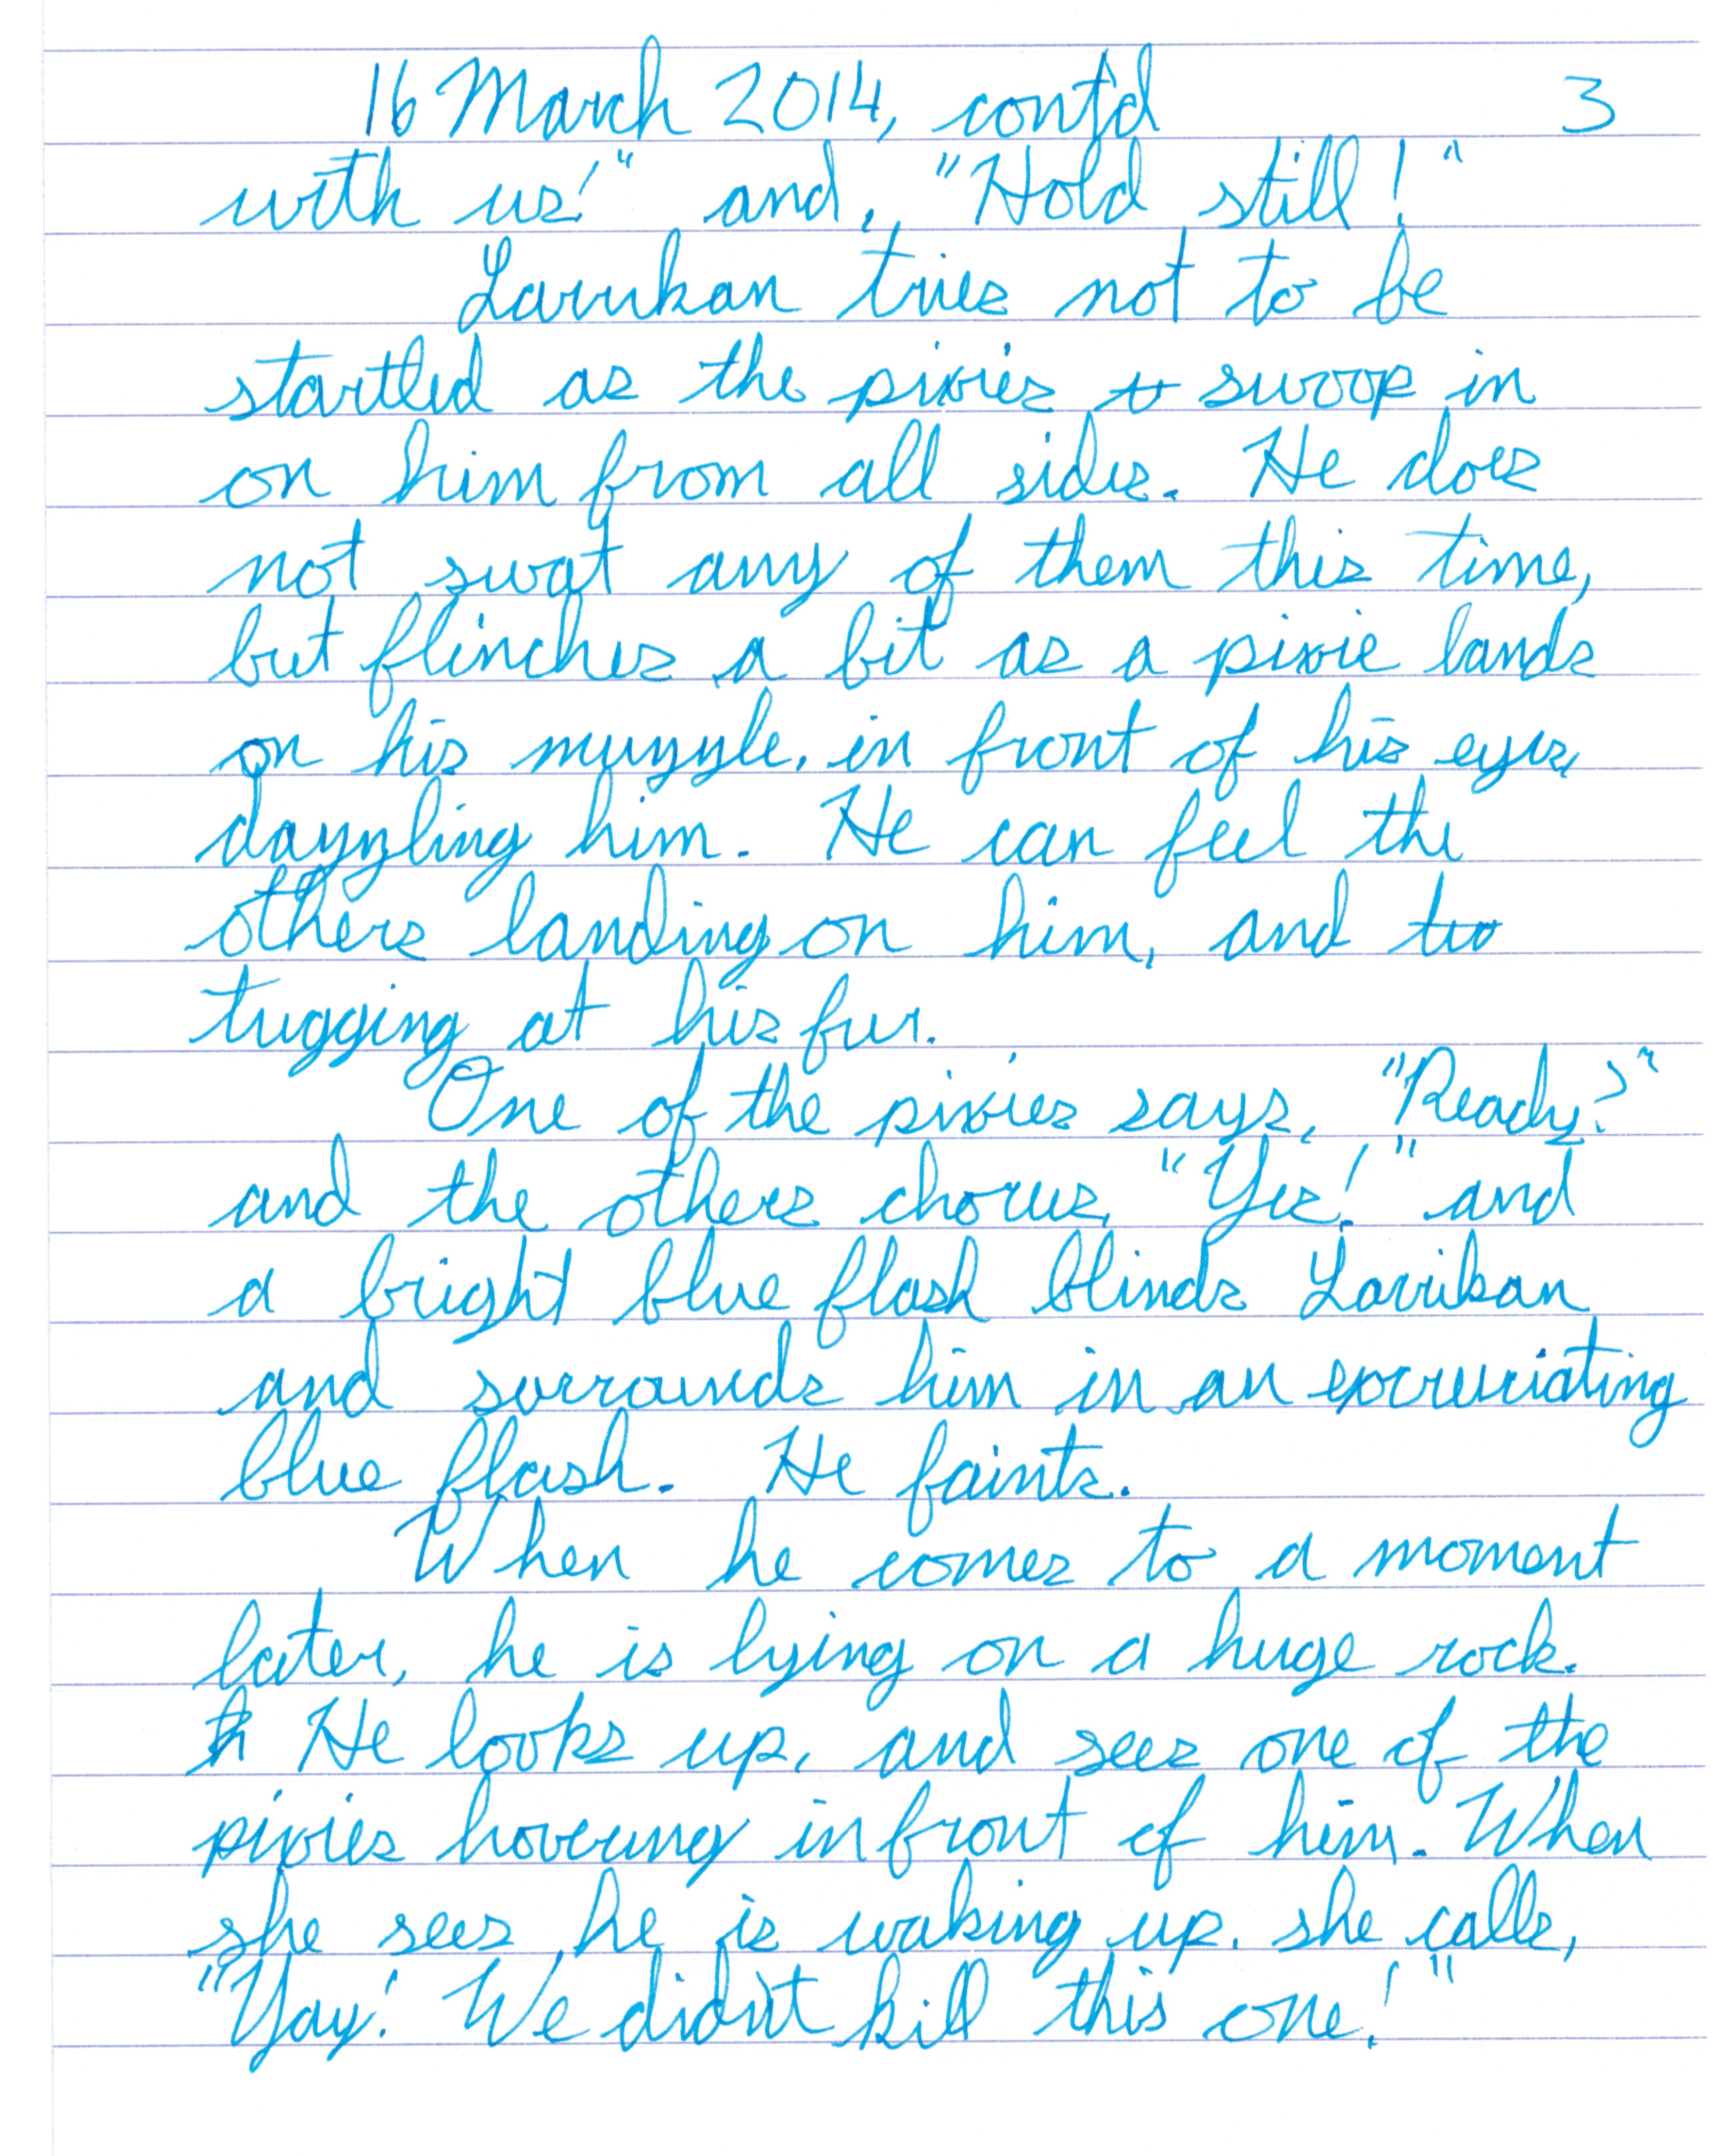 16 March 2014, cont'd 3
with us!" and, "Hold still!"
Larrikan tries not to be
startled as the pixies swoop in
on him from all sides. He does
not swat any of them this time,
but flinches a bit as a pixie lands
on his muzzle, in front of his eyes,
dazzling him. He can feel the
others landing on him, and
tugging at his fur.
One of the pixies says, "Ready?"
and the others chorus, "Yes!" and
a bright blue flash blinds Larrikan
and surrounds him in an excruciating
blue flash. He faints.
When he comes to a moment
later, he is lying on a huge rock.
He looks up, and sees one of the
pixies hovering in front of him. When
she sees he is waking up, she calls,
"Yay! We didn't kill this one!"